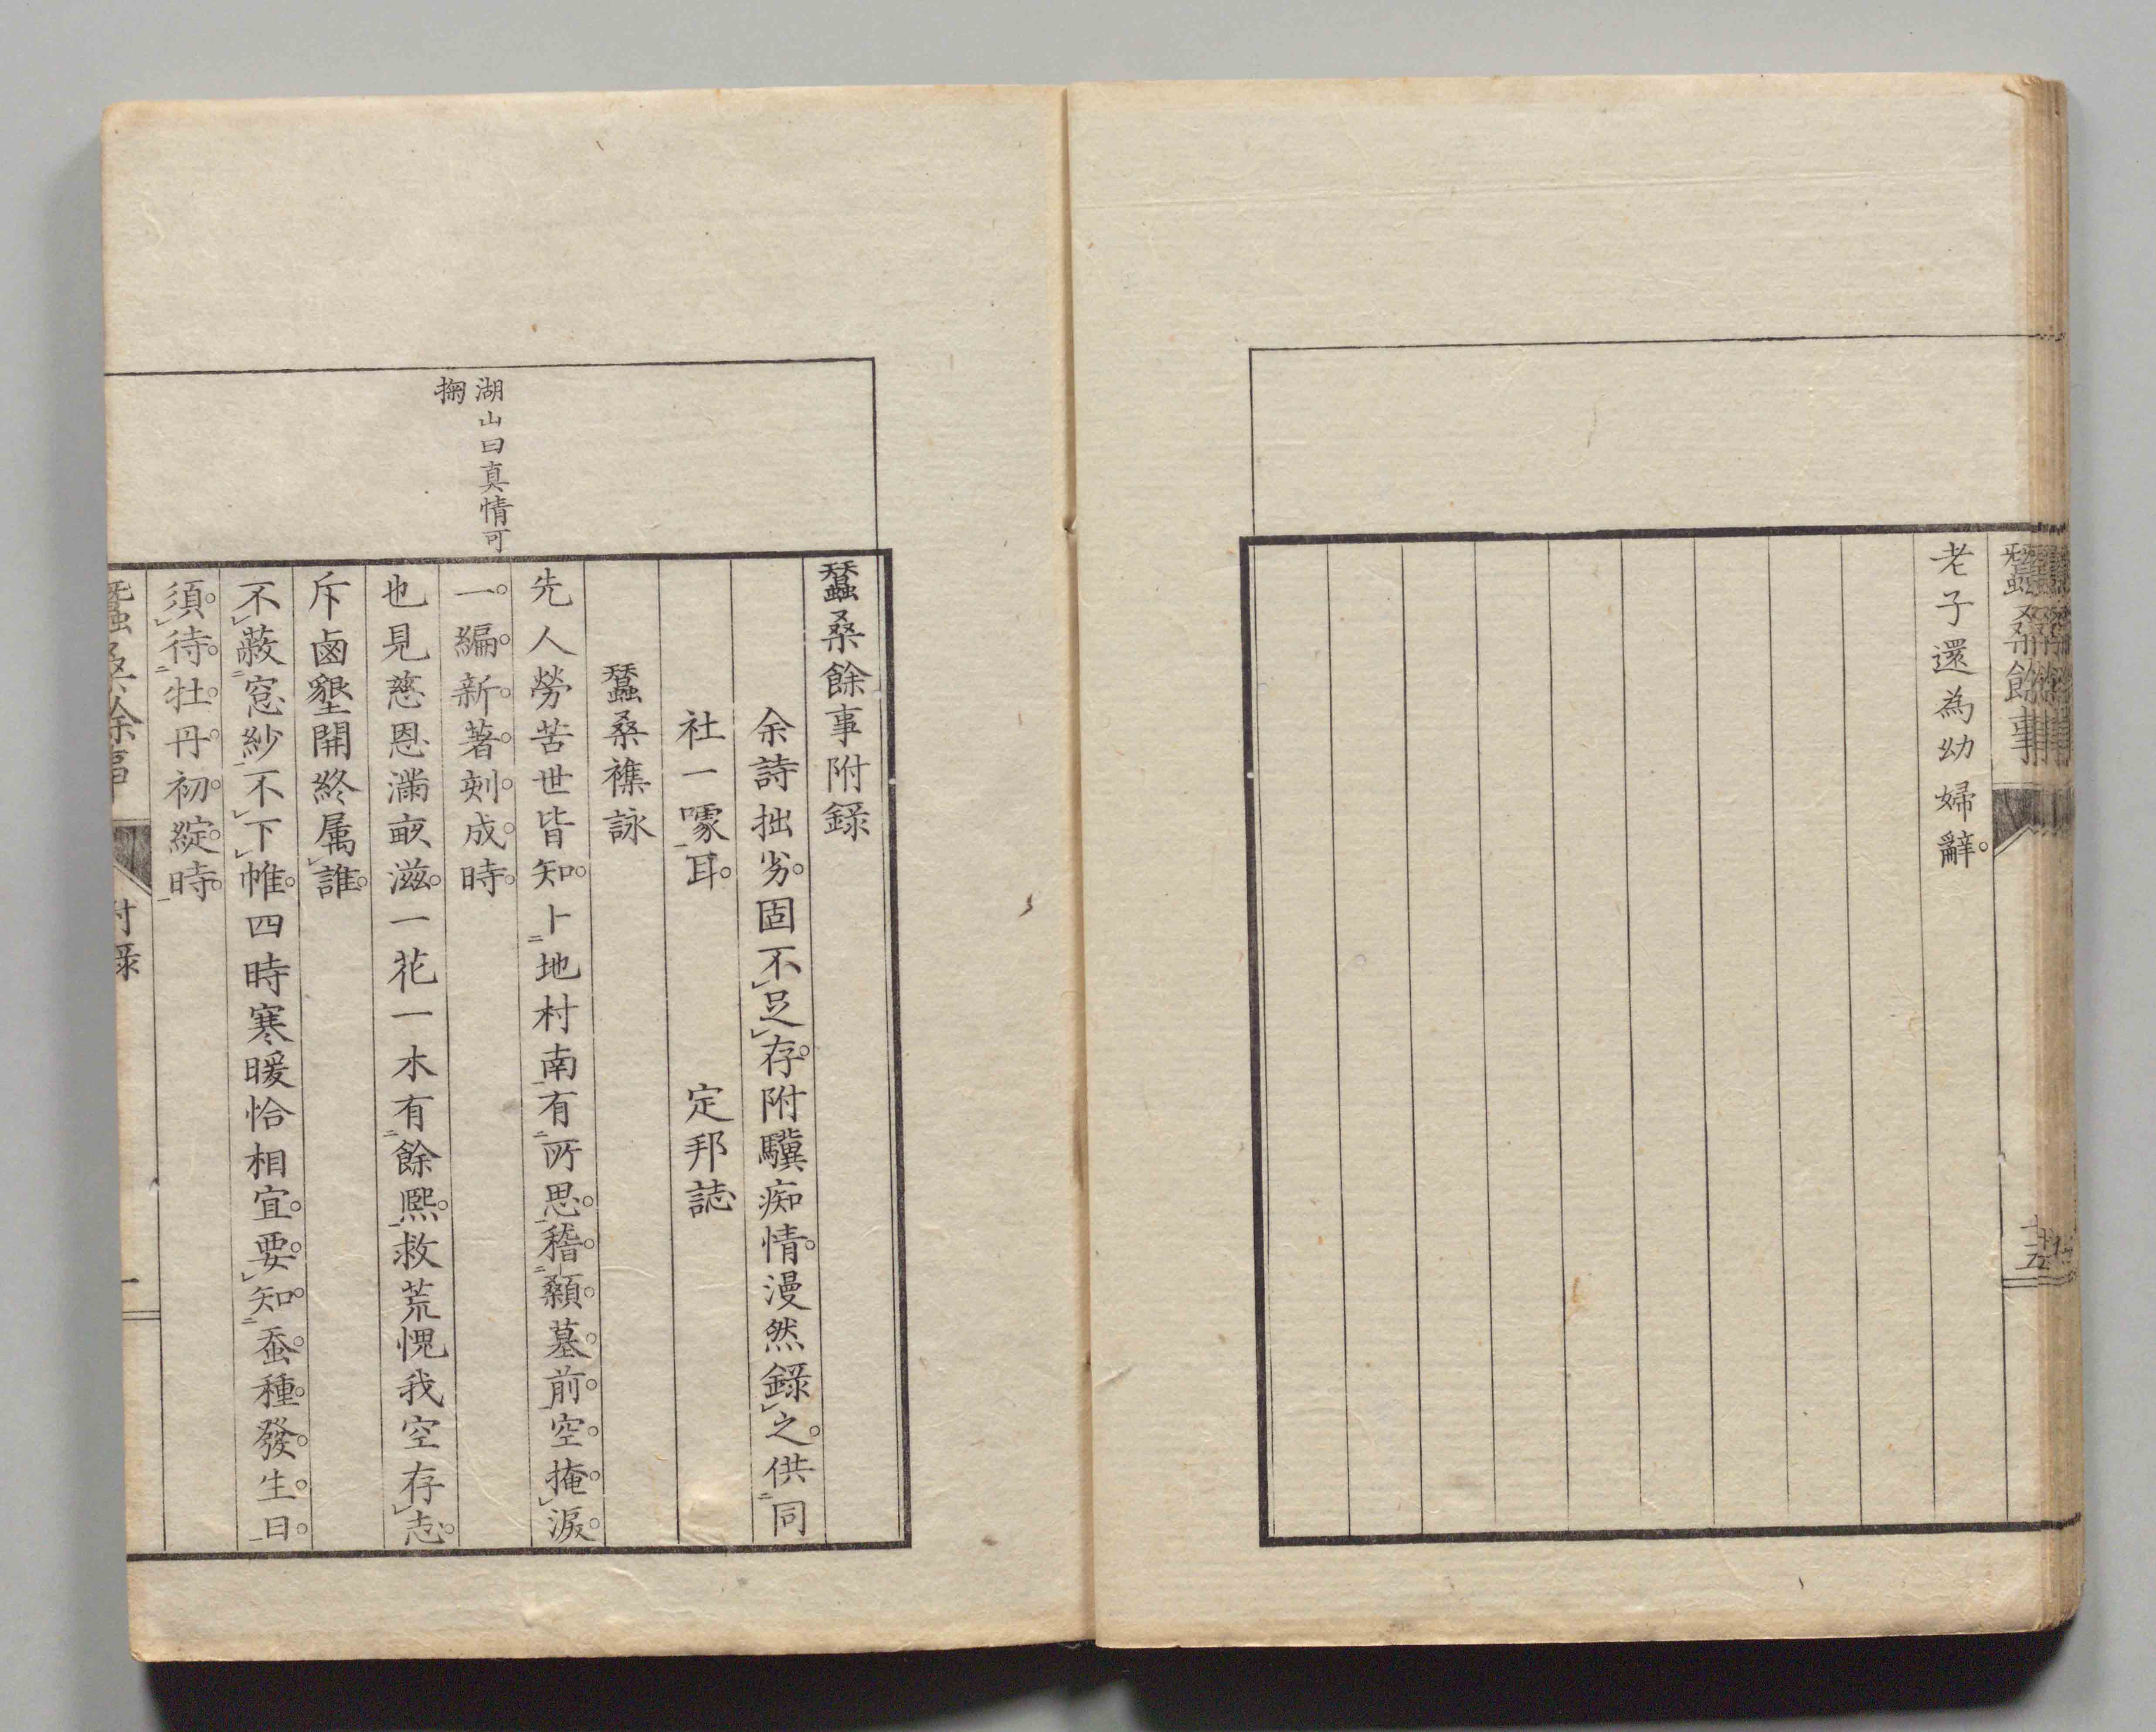 蠶桑餘事
十五
老子還為幼婦辭。
蠶桑餘事附錄
余詩拙劣。固不足存。附驥痴情。漫然錄之。供同
社一噱耳。 定邦誌
蠶桑襍詠
湖山曰真情可
掬
先人勞苦世皆知。卜地村南有所思。稽顙墓前空掩淚
一編新著刻成時
也見慈恩滿畝滋。一花一木有餘熙。救荒愧我空存志。
斥鹵墾開終屬誰。
不蔽窓紗不下帷。四時寒暖恰相宜。要知蚕種發生日
須待牡丹初綻時
蠶桑餘事
附錄
一